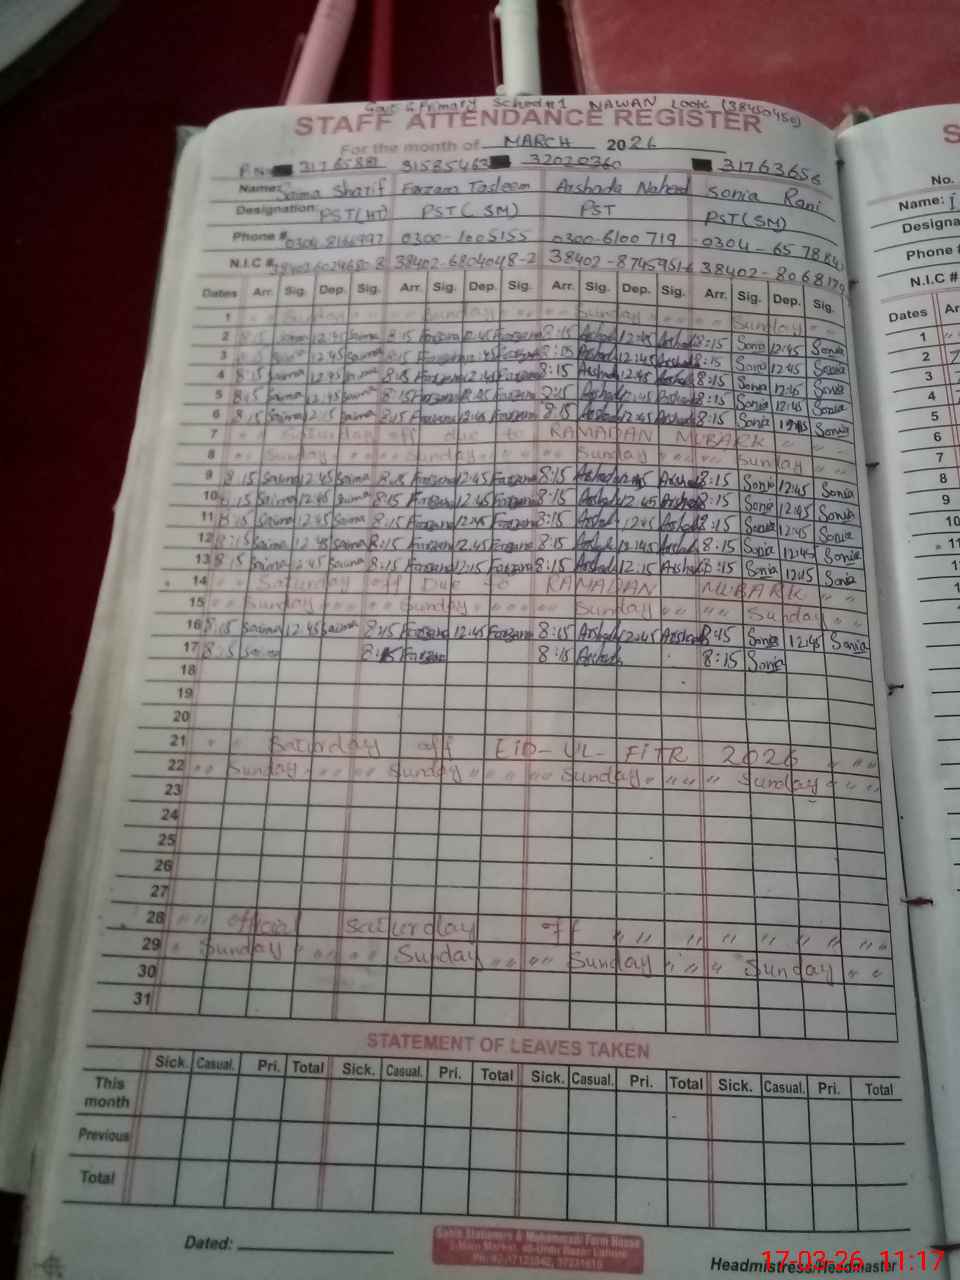 Govt G Primary School #1 NAWAN Look (38450450)
STAFF ATTENDANCE REGISTER
For the month of MARCH 2026
P.No 31765881 31585463 32020360 31763656
Name: Saima Sharif Farzam Tasleem Arshada Naheed Sonia Rani
Designation: PST(HT) PST(SM) PST PST(SM)
Phone # 0300-1005155 0300-6100719 0304-65
N.I.C #. 38402-6804048-2 38402-8745951-6 38402-806817
Dates Arr. Sig. Dep. Sig. Arr. Sig. Dep. Sig. Arr. Sig. Dep. Sig. Arr. Sig. Dep. Sig.
1 " " Sunday " " " Sunday " " " Sunday " " Sunday " "
2 8:15 Saima 12:45 Saima 8:15 Farzam 12:45 Farzam 8:15 Arshad 12:45 Arshad 8:15 Sonia 12:45 Sonia
3 12:45 Saima 8:15 Farzam 12:45 Farzam 8:15 Arshad 12:45 Arshad 8:15 Sonia 12:45 Sonia
4 8:15 Saima 12:45 Saima 8:15 Farzam 12:45 Farzam 8:15 Arshad 12:45 Arshad 8:15 Sonia 12:45 Sonia
5 8:15 Saima 12:45 Saima 8:15 Farzam 12:45 Farzam 8:15 Arshad 12:45 Arshad 8:15 Sonia 12:45 Sonia
6 8:15 Saima 12:15 Saima 8:15 Farzam 12:45 Farzam 8:15 Arshad 12:45 Arshad 8:15 Sonia Sonia
7 " " Saturday off due to RAMADAN MUBARK " "
8 " " Sunday " " " Sunday " " " Sunday " " " Sunday " "
9 8:15 Saima 12:45 Saima 8:15 Farzam 12:45 Farzam 8:15 Arshad 12:45 Arshad 8:15 Sonia 12:45 Sonia
10 8:15 Saima 12:45 Saima 8:15 Farzam 12:45 Farzam 8:15 Arshad 12:45 Arshad 8:15 Sonia 12:45 Sonia
11 8:15 Saima 12:45 Saima 8:15 Farzam 12:45 Farzam 8:15 Arshad 12:45 Arshad 8:15 Sonia 12:45 Sonia
12 8:15 Saima 12:45 Saima 8:15 Farzam 12:45 Farzam 8:15 Arshad 12:45 Arshad 8:15 Sonia 12:45 Sonia
13 8:15 Saima 12:45 Saima 8:15 Farzam 12:15 Farzam 8:15 Arshad 12:15 Arshad 8:15 Sonia 12:15 Sonia
14 " " Saturday off Due to RAMADAN MUBARK " "
15 " " Sunday " " " Sunday " " " " Sunday " " " " Sunday " "
16 8:15 Saima 12:45 Saima 8:45 Farzam 12:45 Farzam 8:15 Arshad 12:45 Arshad 8:45 Sonia 12:45 Sonia
17 8:15 Saima 8:15 Farzam 8:15 Arshad 8:15 Sonia
18
19
20
21 " " Saturday off EID-UL-FITR 2026 " " "
22 " " Sunday " " " " Sunday " " " " Sunday " " " " Sunday " " "
23
24
25
26
27
28 " " official saturday off " " " " " " " "
29 " Sunday " " " " Sunday " " " " Sunday " " " Sunday " "
30
31
STATEMENT OF LEAVES TAKEN
Sick. Casual. Pri. Total Sick. Casual. Pri. Total Sick. Casual. Pri. Total Sick. Casual. Pri. Total
This month
Previous
Total
Dated:
Headmistress/Headmaster
17-03-26 11:17
S
No.
Name:
Designa
Phone #
N.I.C #
Dates Ar
1
2
3
4
5
6
7
8
9
10
11
12